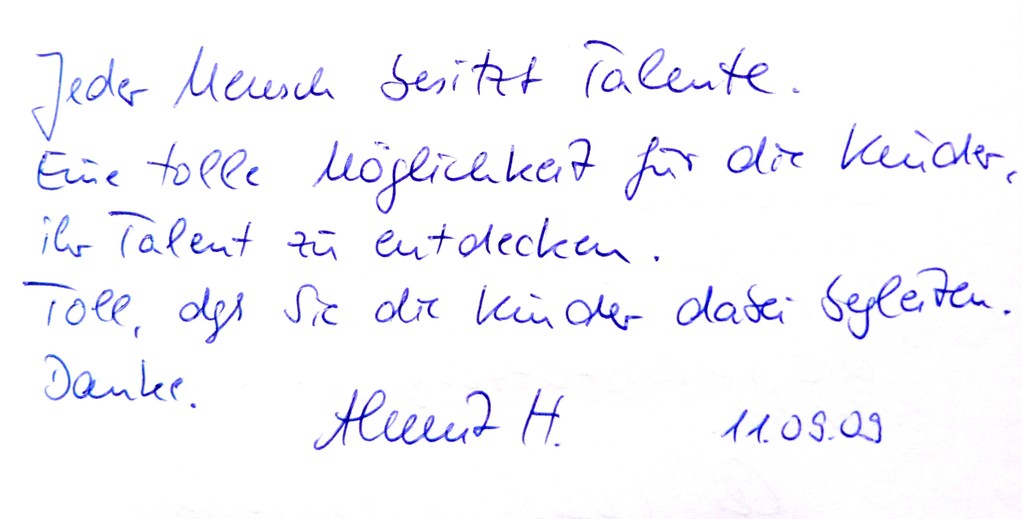 Jeder Mensch besitzt Talente.
Eine tolle Möglichkeit für die Kinder,
ihr Talent zu entdecken.
Toll, daß Sie die Kinder dabei begleiten.
Danke.
Almut H. 11.09.09